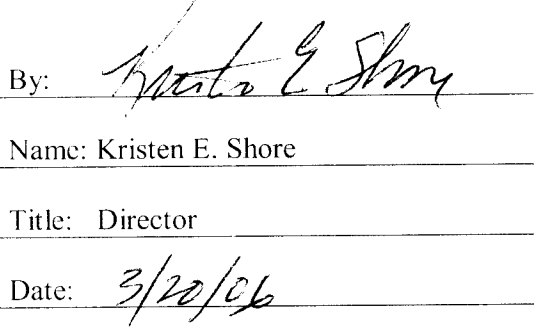 By: Kristen E Shore
Name: Kristen E. Shore
Title: Director
Date: 3/20/06